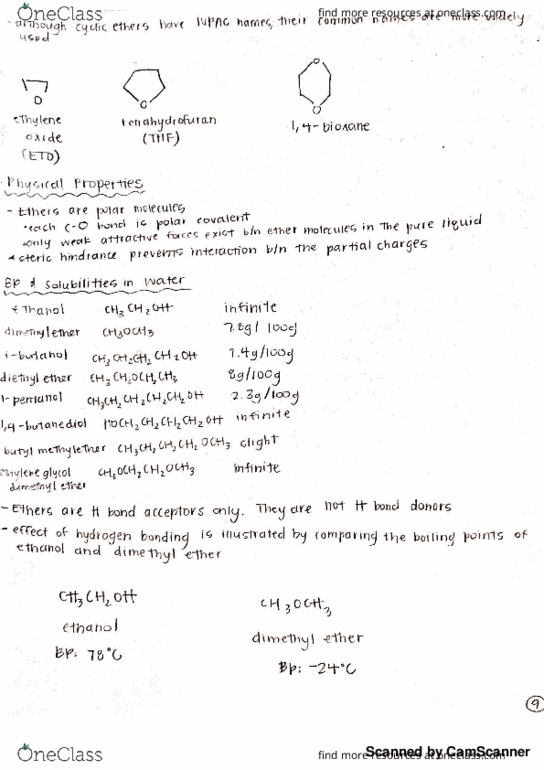 OneClass
find more resources at oneclass.com
- although cyclic ethers have IUPAC names, their common names are more widely
used
O
O
O
O
ethylene
oxide
(ETO)
tetrahydrofuran
(THF)
1,4-dioxane
Physical Properties
- Ethers are polar molecules
• each C-O bond is polar covalent
• only weak attractive forces exist b/n ether molecules in the pure liquid
steric hindrance prevents interaction b/n the partial charges
BP & Solubilities in Water
ethanol CH3CH2OH infinite
dimethyl ether CH3OCH3 7.8g/100g
1-butanol CH3CH2CH2CH2OH 7.4g/100g
diethyl ether CH3CH2OCH2CH3 8g/100g
1-pentanol CH3CH2CH2CH2CH2OH 2.3g/100g
1,4-butanediol HOCH2CH2CH2CH2OH infinite
butyl methyl ether CH3CH2CH2CH2OCH3 slight
ethylene glycol CH3OCH2CH2OCH3 infinite
dimethyl ether
- Ethers are H bond acceptors only. They are not H bond donors
- effect of hydrogen bonding is illustrated by comparing the boiling points of
ethanol and dimethyl ether
CH3CH2OH
ethanol
BP: 78°C
CH3OCH3
dimethyl ether
BP: -24°C
9
OneClass
find more resources at oneclass.com
Scanned by CamScanner